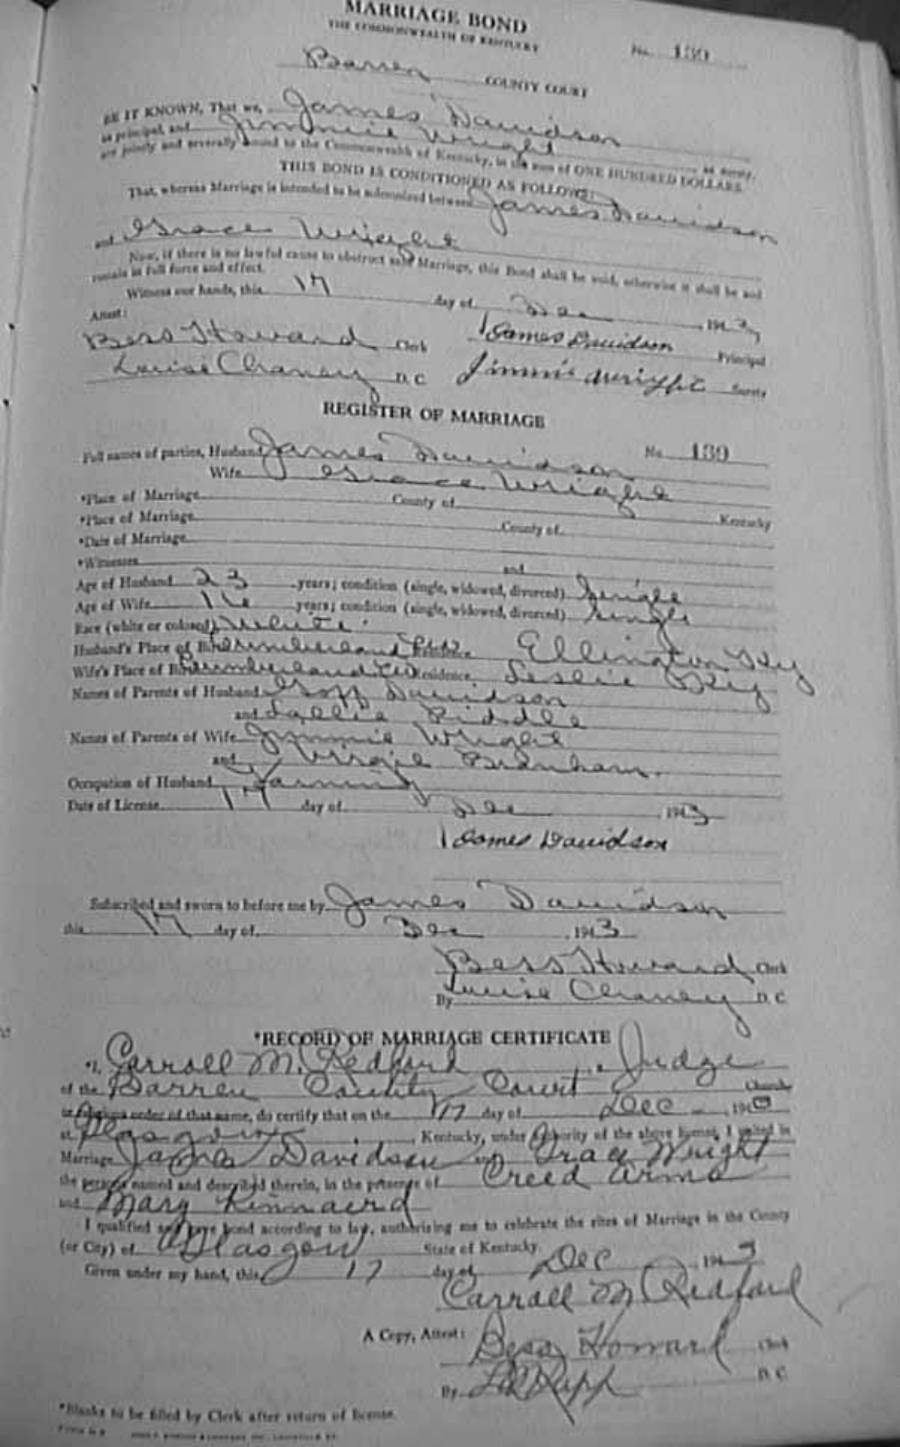 MARRIAGE BOND
THE COMMONWEALTH OF KENTUCKY
No. 139
Barren COUNTY COURT
BE IT KNOWN, That we, James Davidson
as principal, and Jimmie Wright as surety,
are jointly and severally bound to the Commonwealth of Kentucky, in the sum of ONE HUNDRED DOLLARS.
THIS BOND IS CONDITIONED AS FOLLOWS:
That, whereas Marriage is intended to be solemnized between James Davidson
and Grace Wright
Now, if there is no lawful cause to obstruct said Marriage, this Bond shall be void, otherwise it shall be and
remain in full force and effect.
Witness our hands, this 17 day of Dec 1943
Attest:
Bess Howard Clerk James Davidson Principal
Louise Chaney D. C. Jimmie Wright Surety
REGISTER OF MARRIAGE
No. 139
Full names of parties, Husband James Davidson
Wife Grace Wright
*Place of Marriage County of Kentucky
*Place of Marriage County of
*Date of Marriage
*Witnesses and
Age of Husband 23 years; condition (single, widowed, divorced) Single
Age of Wife 16 years; condition (single, widowed, divorced) Single
Race (white or colored) White
Husband's Place of Birth Cumberland Residence Ellington Ky
Wife's Place of Birth Cumberland Co Residence Leslie Ky
Names of Parents of Husband Davidson
and Sallie Riddle
Names of Parents of Wife Jimmie Wright
and Virgie Burnham
Occupation of Husband Farming
Date of License 17 day of Dec 1943
James Davidson
Subscribed and sworn to before me by James Davidson
this 17 day of Dec 1943
Bess Howard Clerk
By Louise Chaney D. C.
*RECORD OF MARRIAGE CERTIFICATE
*I, Carroll M. Redford, Judge
of the Barren County Court Church
or religious order of that name, do certify that on the 17 day of Dec 194
at Glasgow, Kentucky, under authority of the above license, I united in
Marriage James Davidson and Grace Wright
the persons named and described therein, in the presence of Creed Arms
and Mary Kinnaird
I qualified and gave bond according to law, authorizing me to celebrate the rites of Marriage in the County
(or City) of Glasgow State of Kentucky.
Given under my hand, this 17 day of Dec 1943
Carroll M Redford
A Copy, Attest: Bess Howard Clerk
By D. C.
*Blanks to be filled by Clerk after return of license.